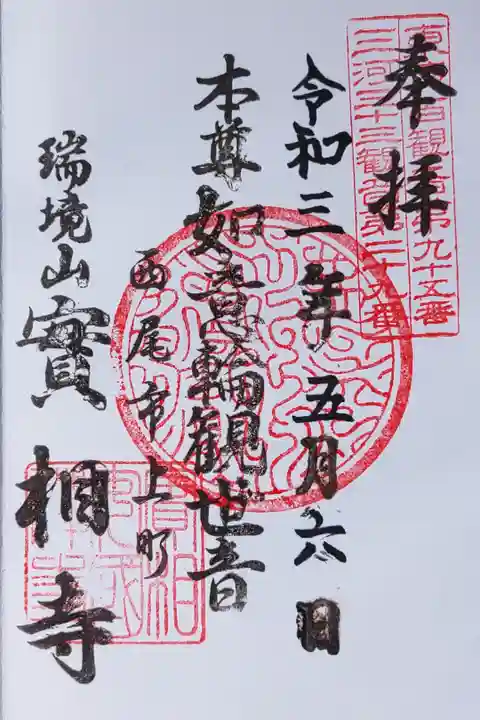 奉拝
三河三十三観音第二十九番
令和三年五月六日
本尊如意輪観世音
西尾市上町
瑞境山實相寺